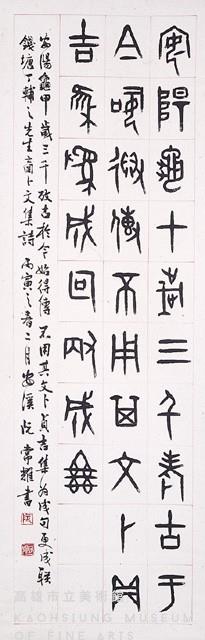 安陽龜甲歲三千考古于
今始得傳不用其文卜貞
吉集為成句更成聯
安陽龜甲歲三千攷古於今始得傳不用其文卜貞吉集為成句更成聯
錢塘丁輔之先生商卜文集詩丙寅之春二月安溪阮常耀書
高雄市立美術館
KAOHSIUNG MUSEUM
OF FINE ARTS